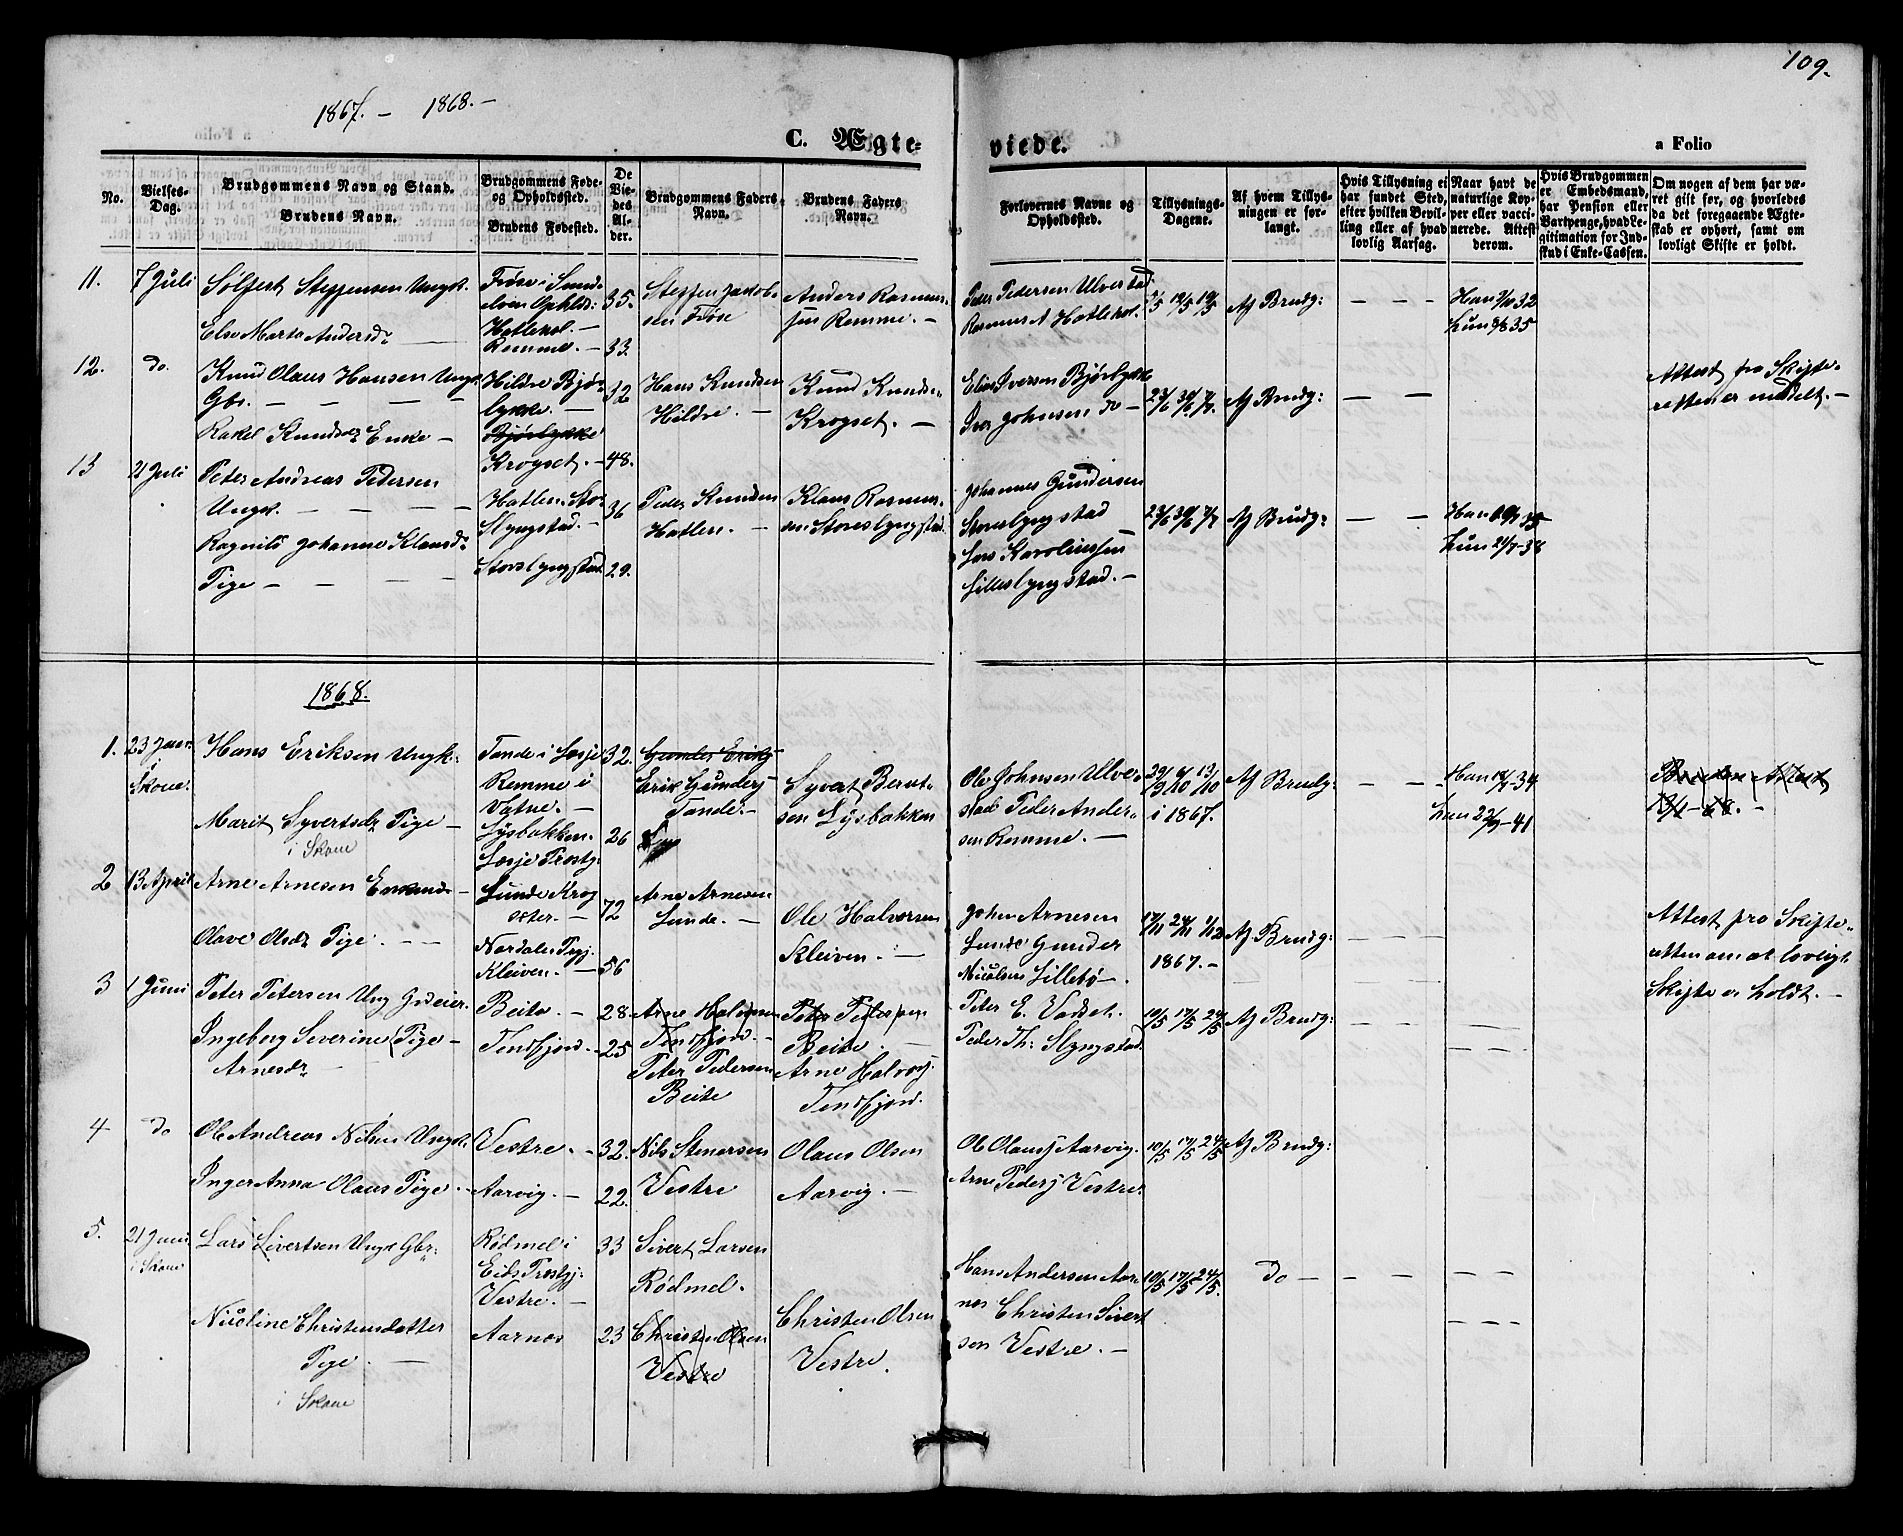 109.
1867. - 1868. -
C. Ægte-
viede.
a Folio
No.
Vielses-
Dag.
Brudgommens Navn og Stand.
Brudens Navn.
Brudgommens Føde-
og Opholdssted.
Brudens Fødested.
De
Vie-
des
Al-
der.
Brudgommens Faders
Navn.
Brudens Faders
Navn.
Forlovernes Navne og
Opholdssted.
Tillysnings-
Dagene.
Af hvem Tillys-
ningen er for-
langt.
Hvis Tillysning ei
har fundet Sted,
efter hvilken Bevil-
ling eller af hvad
lovlig Aarsag.
Naar havt de
naturlige Kop-
per eller vacci-
nerede. Attest
derom.
Hvis Brudgommen
er Embedsmand,
har Pension eller
Vartpenge, hvad Le-
gitimation for Ind-
skud i Enke-Cassen.
Om nogen af dem har væ-
ret gift før, og hvorledes
da det foregaaende Ægte-
skab er ophørt, samt om
lovligt Skifte er holdt.
11.
7 Juli
Sølfert Steffensen Ungk.
Else Marta Andersdr
Hatlehol. -
Remme. -
35.
33.
Steffen Jakob-
sen Frøse
Anders Rasmus-
sen Remme. -
Peder Pedersen Ulvestad
Rasmus A Hatlehol.
5/5 12/5 19/5
Af Brudg:
Han 32
Hun 35
12.
do.
Knud Olaus Hansen Ungk.
Gbr. - - - -
Rakel Knudsdr Enke -
Hildre Bjør-
lykke. -
Bjørlykke
Krogset. -
32
48.
Hans Knudsen
Hildre. -
Knud Knuds-
Krogset. -
Elias Iversen Bjørlykke
Iver Johnsen do -
23/6 30/6 7/7.
Af Brudg:
Attest fra Skifte-
retten er meddelt. -
13
21 Juli
Peter Andreas Pedersen
Ungk. - - - -
Ragnild Johanne Klausdr
Pige - - - -
Hatlen. Stor
Slyngstad. -
Storeslyngstad.
36
29.
Peder Knudsen
Hatlen. -
Klaus Rasmus-
sen Storeslyngstad.
Johannes Gundersen
Storeslyngstad
Lars Karolinssen
Lilleslyngstad. -
23/6 30/6 7/7
Af Brudg:
Han 35
Hun 21/7-38
1868.
1.
23 Janr.
i
Skoue.
Hans Eriksen Ungk.
Marit Syvertsdr Pige -
i Skoue
Tande i Lesje
Remme i
Vatne. -
Lysbakken.
Lesje Prestg:
32.
26
Gunder Eriks
Erik Gunders
Tande. -
Syvert Bernt-
sen Lysbakken
Ole Johnsen Ulve-
stad Peder Ander-
sen Remme. -
29/9 6/10 13/10
i 1867.
Af Brudg:
Han 34
Hun 22/9-41
Brudens Attest
13/1-68. -
2
13 April
Arne Arnesen Enkemd. -
Olave Olsdr Pige. - -
Lunde Krog
øster. -
Nordalens Prgj.
Kleiven. -
72
56
Arne Arnesen
Lunde. -
Ole Halvorsen
Kleiven. -
Johan Arnesen
Lunde Gunder
Nicolsen Lillebø -
17/11 24/11 1/12
1867. -
Af Brudg:
Attest fra Skifte-
retten om at lovligt
Skifte er holdt. -
3
1 Juni
Peter Petersen Ung Gdeier.
Ingeborg Severine Pige -
Arnesdr -
Beite. -
Tendfjord. -
28.
25
Arne Halvorsen
Tendfjord. -
Peter Pedersen
Beite
Peter Pedersen
Beite. -
Arne Halvorsj.
Tendfjord.
Peter E. Vadset.
Peder Th: Slyngstad.
10/5 17/5 24/5
Af Brudg:
4
do
Ole Andreas Nilsen Ungk.
Inger Anna Olaus Pige. -
Vestre. -
Aarvig. -
32.
22.
Nils Stenersen
Vestre
Olaus Olsen
Aarvig. -
Ole Olausj Aarvig.
Arne Pedersj Vestre.
10/5 17/5 24/5
Af Brudg:
5.
21 Juni.
i Skoue
Lars Sivertsen Ungk Gbr:
Nicoline Christensdatter
Pige. -
i Skoue
Rødmel i
Eids Prestgj:
Vestre. -
Aarnes
33
23
Sivert Larsen
Rødmel.
Christen Olsen
Vestre
Christen Olsen
Vestre.
Hans Andersen Aar-
nes Christen Sivert
sen Vestre. -
10/5 17/5 24/5.
do -